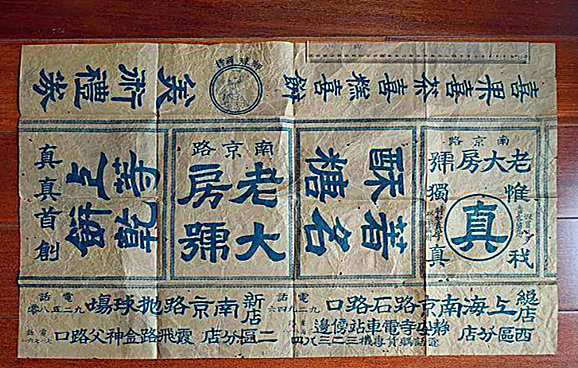 喜果喜茶喜糕喜餅
美術禮券
南京路
老大房號
惟我獨真
真
著名
酥糖
南京路
老大房號
真真首創
總店
上海南京路石路口
電話
新店
南京路拋球場
電話
九二五八零
西區分店
靜安寺電車站傍邊
電話購貨專機三二三八四
二區分店
霞飛路金神父路口